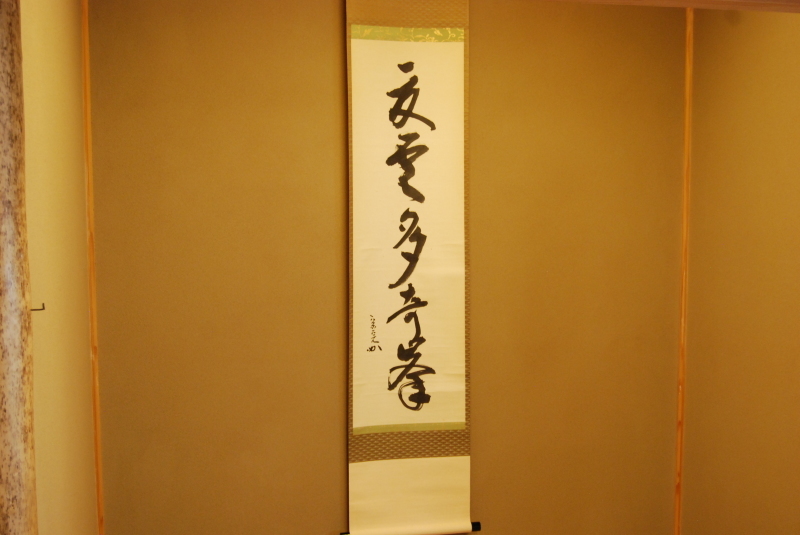 夏雲多奇峯